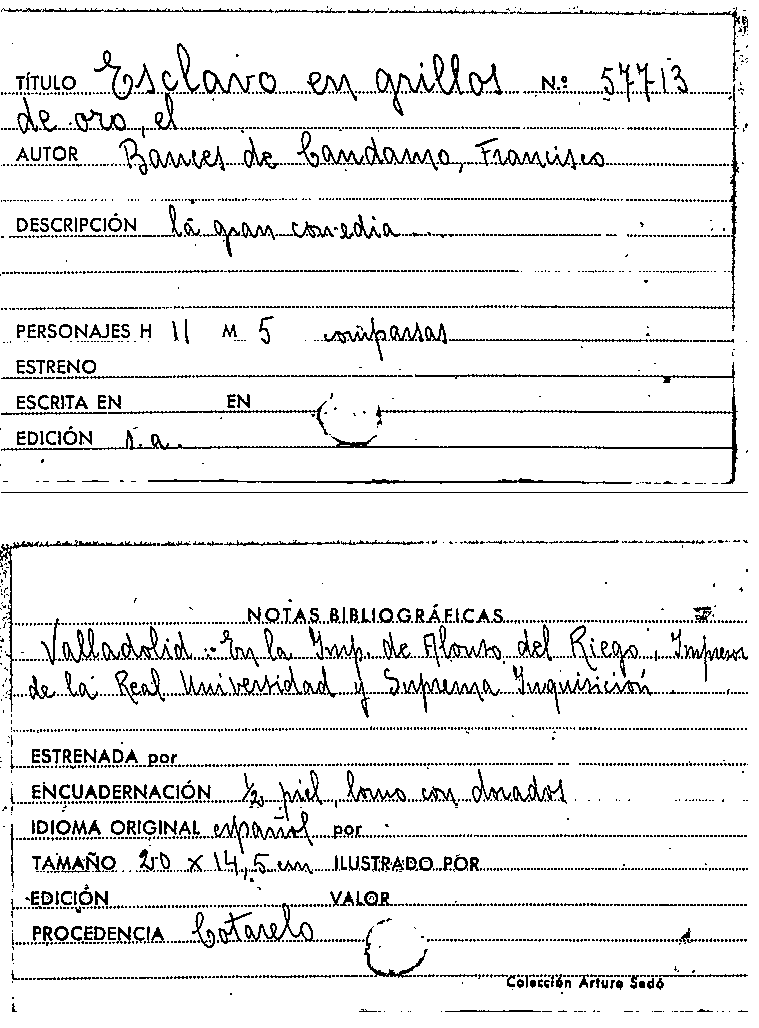 TÍTULO Esclavo en grillos N.º 57713
de oro, el
AUTOR Bances de Candamo, Francisco
DESCRIPCIÓN la gran comedia ....
PERSONAJES H 11 M 5 comparsas
ESTRENO
ESCRITA EN EN
EDICIÓN s.a.
NOTAS BIBLIOGRÁFICAS
Valladolid : En la Imp. de Alonso del Riego, Impresor
de la Real Universidad y Suprema Inquisición
ESTRENADA por
ENCUADERNACIÓN ½ piel, lomo con dorados
IDIOMA ORIGINAL español por
TAMAÑO 20 x 14,5 cm ILUSTRADO POR
EDICIÓN VALOR
PROCEDENCIA Cotarelo
Colección Arturo Sedó